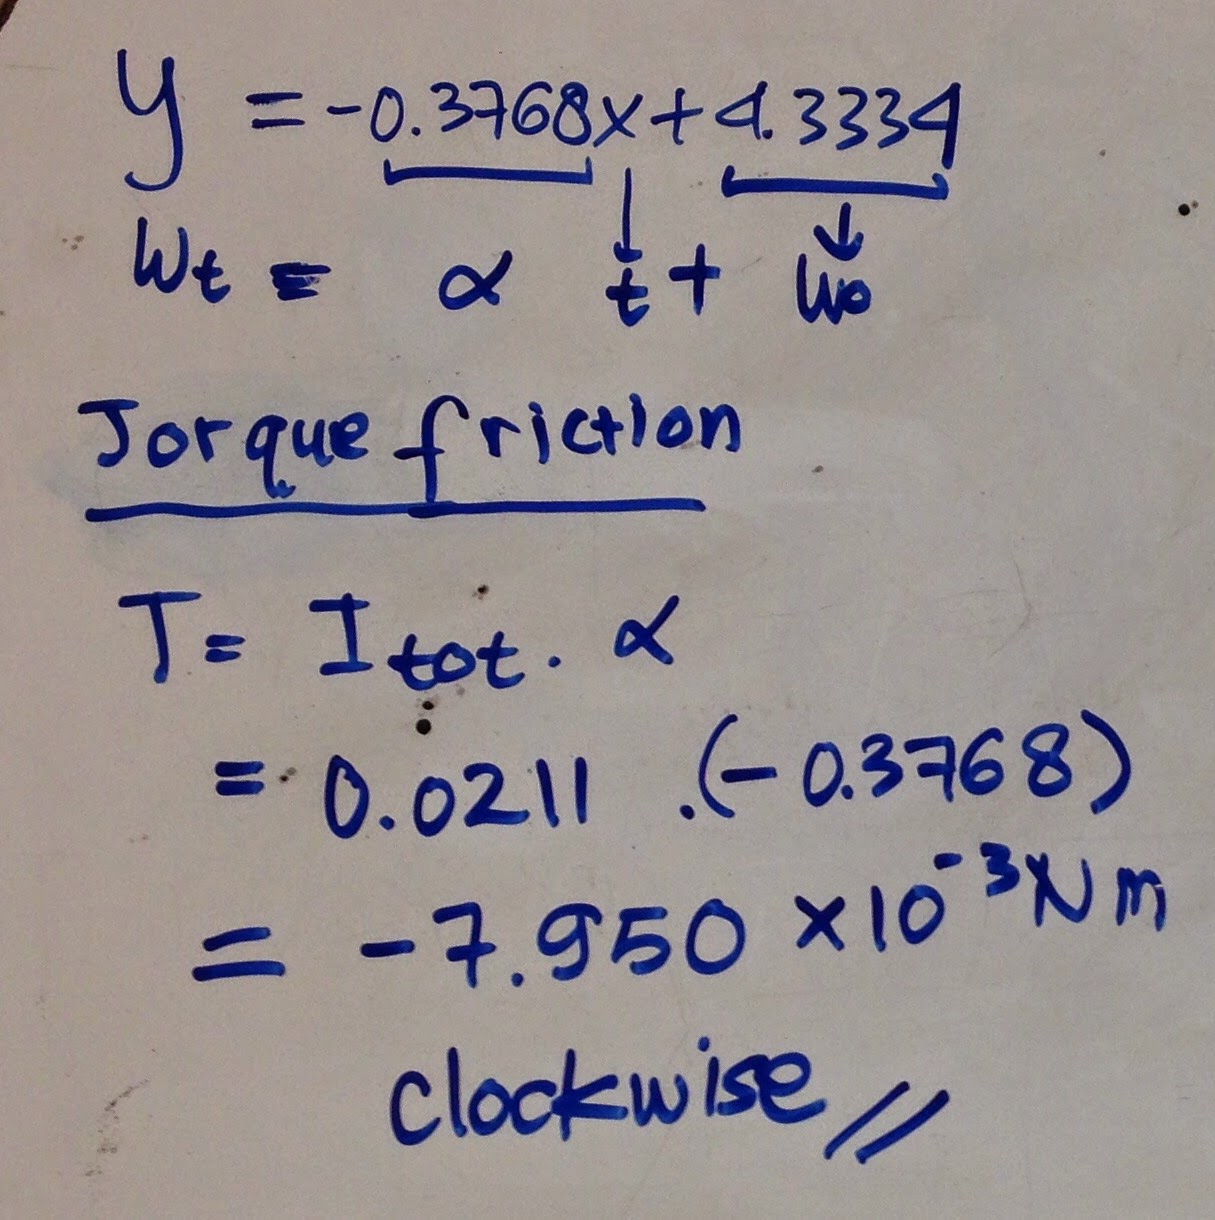 y = -0.3768x + 4.3334
Wt = α t + Wo
Torque friction
T = I tot . α
= 0.0211 .(-0.3768)
= -7.950 x10⁻³ Nm
clockwise //